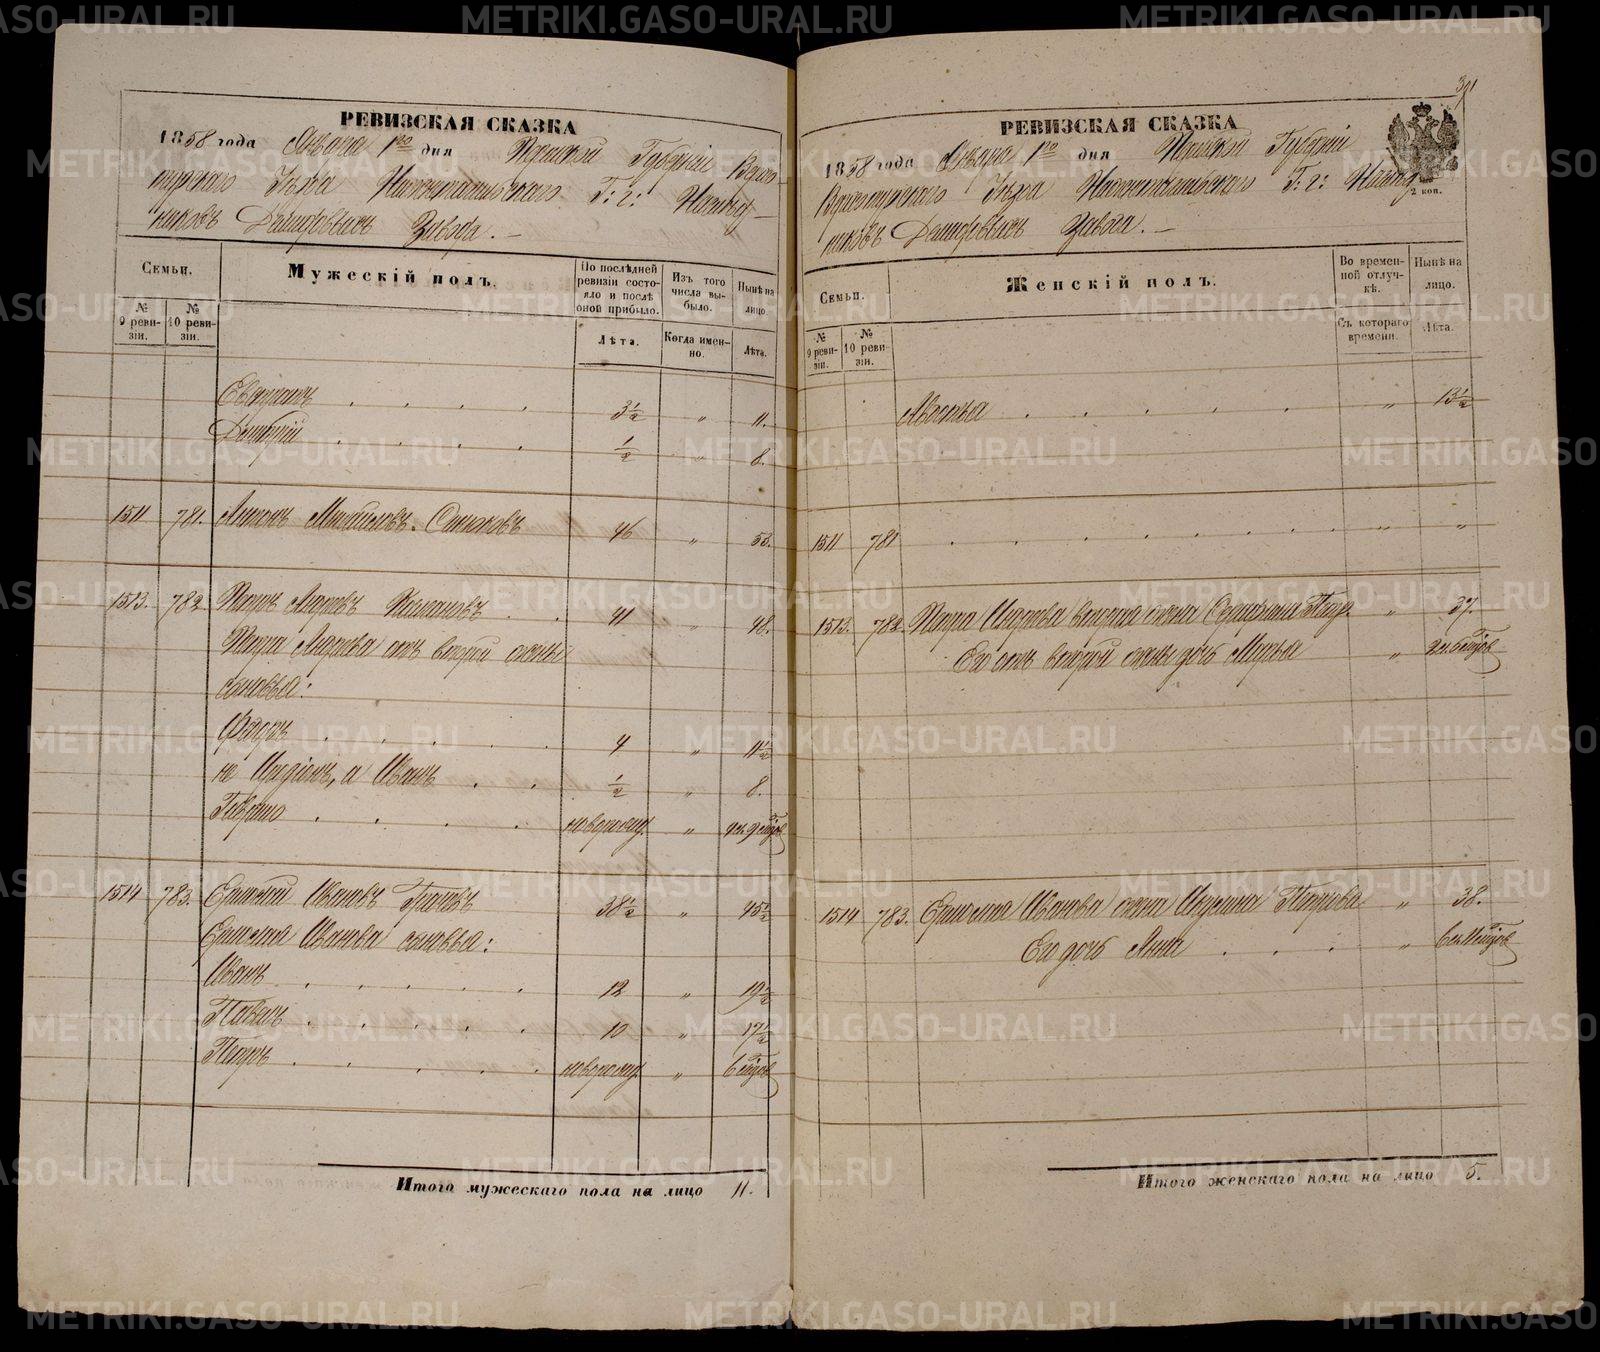 РЕВИЗСКАЯ СКАЗКА
1858 года Января 1го дня Пермской Губерніи Верхо-
турскаго Уѣзда Нижнетагильскаго Г: г: Наслѣд-
никовъ Демидовыхъ Завода. —
Семьи.
№ 9 ревизіи.
№ 10 ревизіи.
Мужескій полъ.
По послѣдней ревизіи состояло и послѣ оной прибыло.
Лѣта.
Изъ того числа выбыло.
Когда именно.
Нынѣ на лицо.
Лѣта.
3½ " 11.
Дмитрій . . . . ½ " 8.
1511 781. Антонъ 46 " 53.
1513. 782. Петръ 41 " 48.
Петра Андреева отъ второй жены
сыновья:
Федоръ . . . . 4 " 11½
не а Иванъ . . ½ " 8.
Гаврило . . . . новорожд. "
1514 783. Ермолай Ивановъ 38½ " 45½
Ермолая Иванова сыновья:
Иванъ . . . . . 12 " 19½
Павелъ . . . . . 10 " 17½
Петръ . . . . . новорожд. "
Итого мужескаго пола на лицо 11.
РЕВИЗСКАЯ СКАЗКА
1858 года Января 1го дня Пермской Губерніи
Верхотурскаго Уѣзда Нижнетагильскаго Г: г: Наслѣд-
никовъ Демидовыхъ Завода. —
2 коп.
Семьи.
№ 9 ревизіи.
№ 10 ревизіи.
Женскій полъ.
Во временной отлучкѣ.
Съ котораго времени.
Нынѣ на лицо.
Лѣта.
Авдотья . . . . . " 13½
1511 781 . . . . . . . " "
1513. 782. Петра Андреева вторая жена " 37.
Его отъ второй жены дочь Марья "
1514 783. Ермолая Иванова жена Петрова " 38.
Его дочь Анна . . . "
Итого женскаго пола на лицо 5.
METRIKI.GASO-URAL.RU